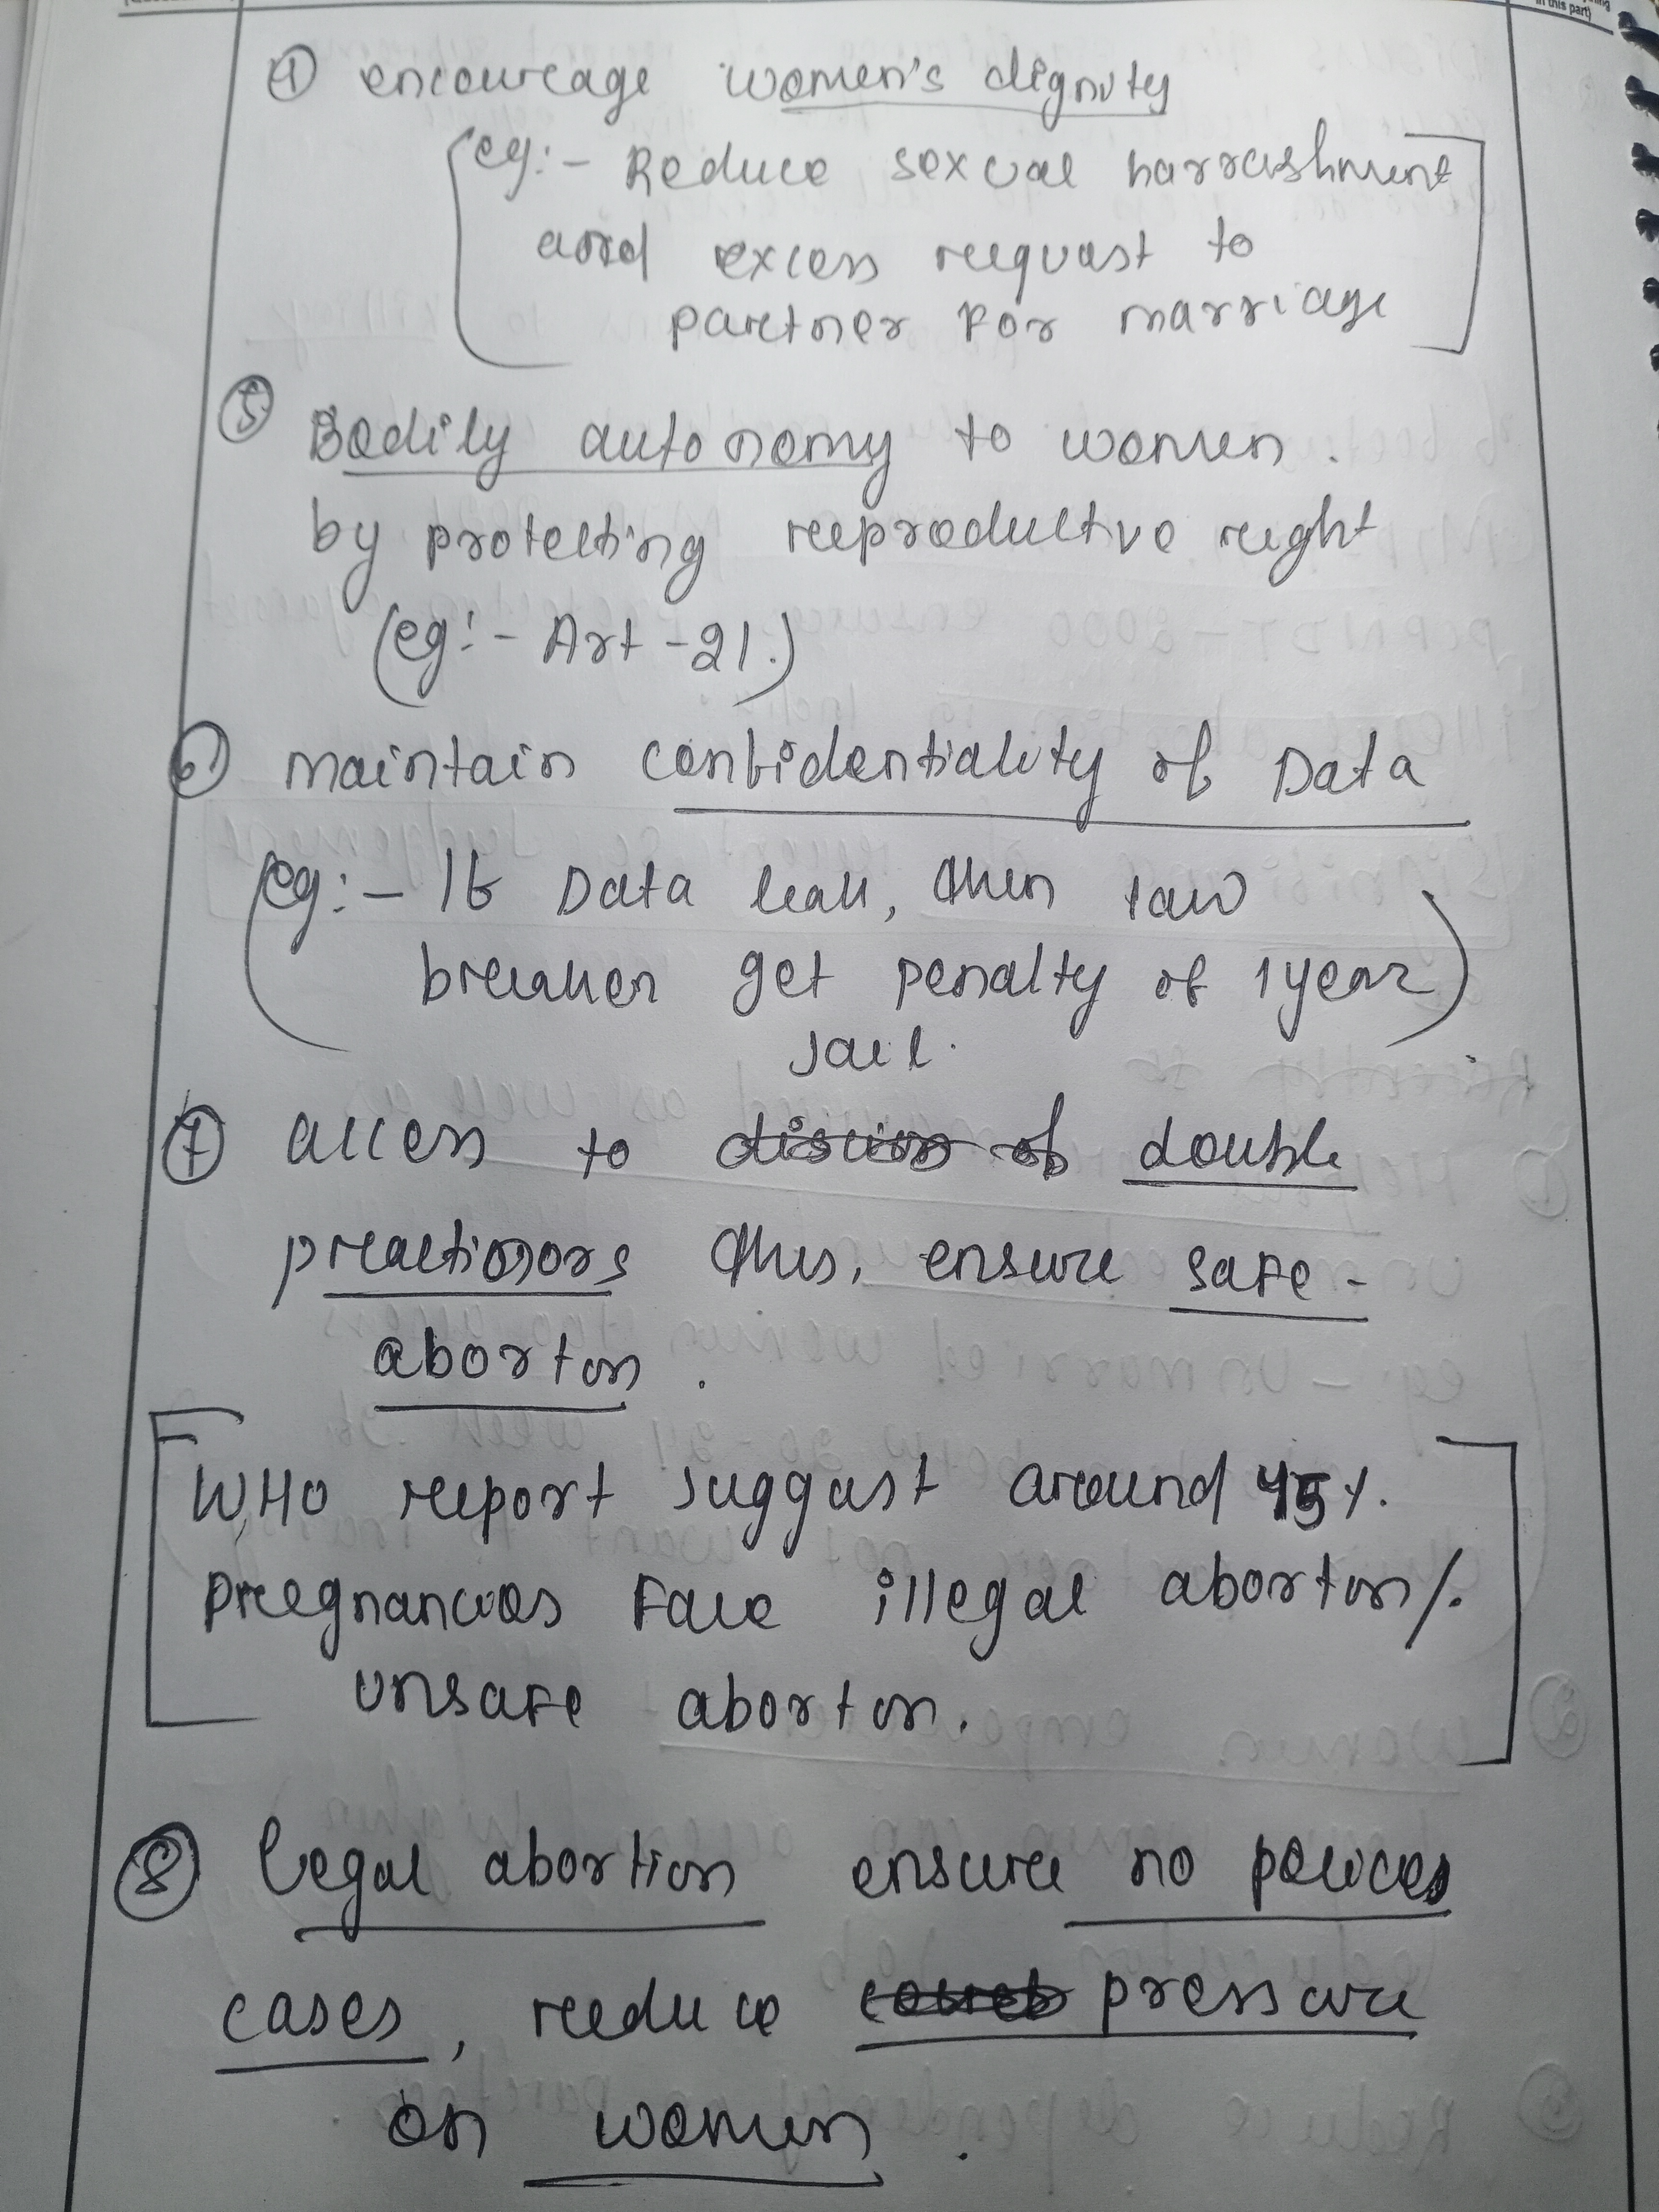 in this part)
④ encourage women's dignity
(eg:- Reduce sexual harrashment
and excess request to
partner for marriage]
⑤ Bodily autonomy to women.
by protecting reproductive right
(eg:- Art-21.)
⑥ maintain confidentiality of Data
(eg:- If Data leak, then law
breaker get penalty of 1 year)
Jail.
⑦ access to double
practionors thus, ensure safe-
abortion.
[WHO report suggest around 45%.
pregnancies face illegal abortion/.
unsafe abortion.]
⑧ legal abortion ensure no polices
cases, reduce pressure
on women.